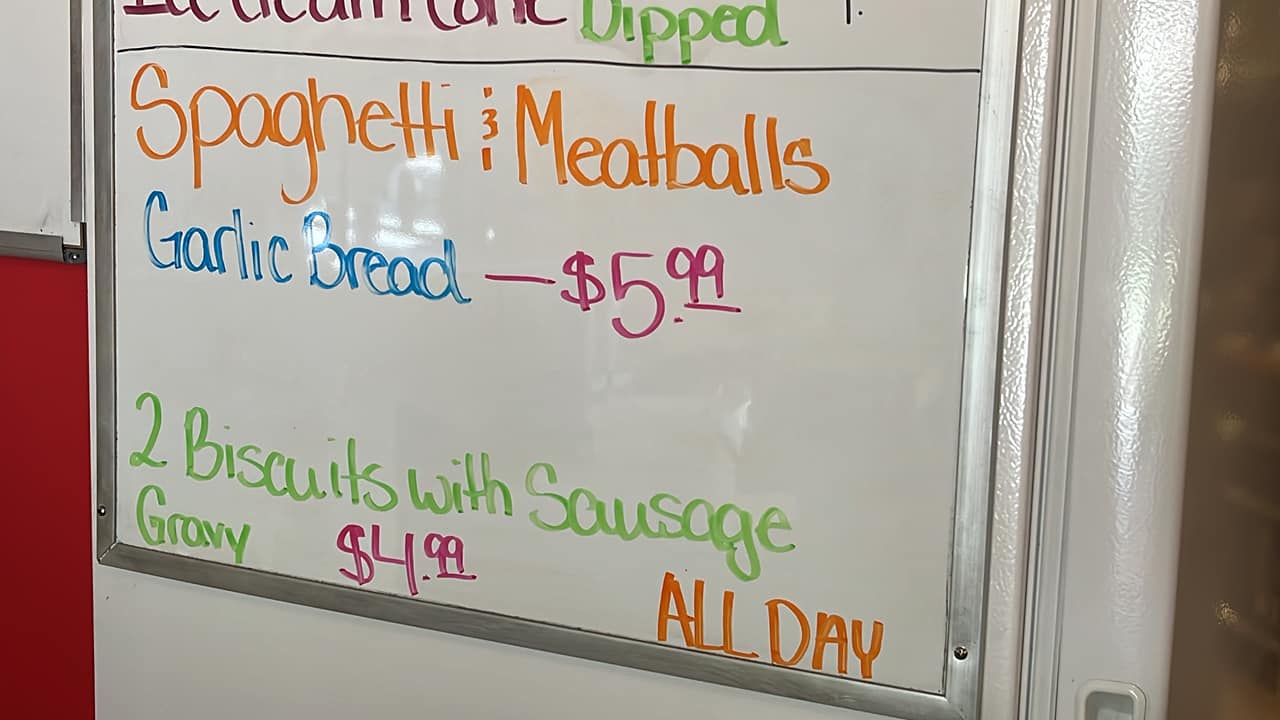 Ice Cream Cone Dipped
Spaghetti & Meatballs
Garlic Bread — $5.99
2 Biscuits with Sausage
Gravy $4.99
ALL DAY